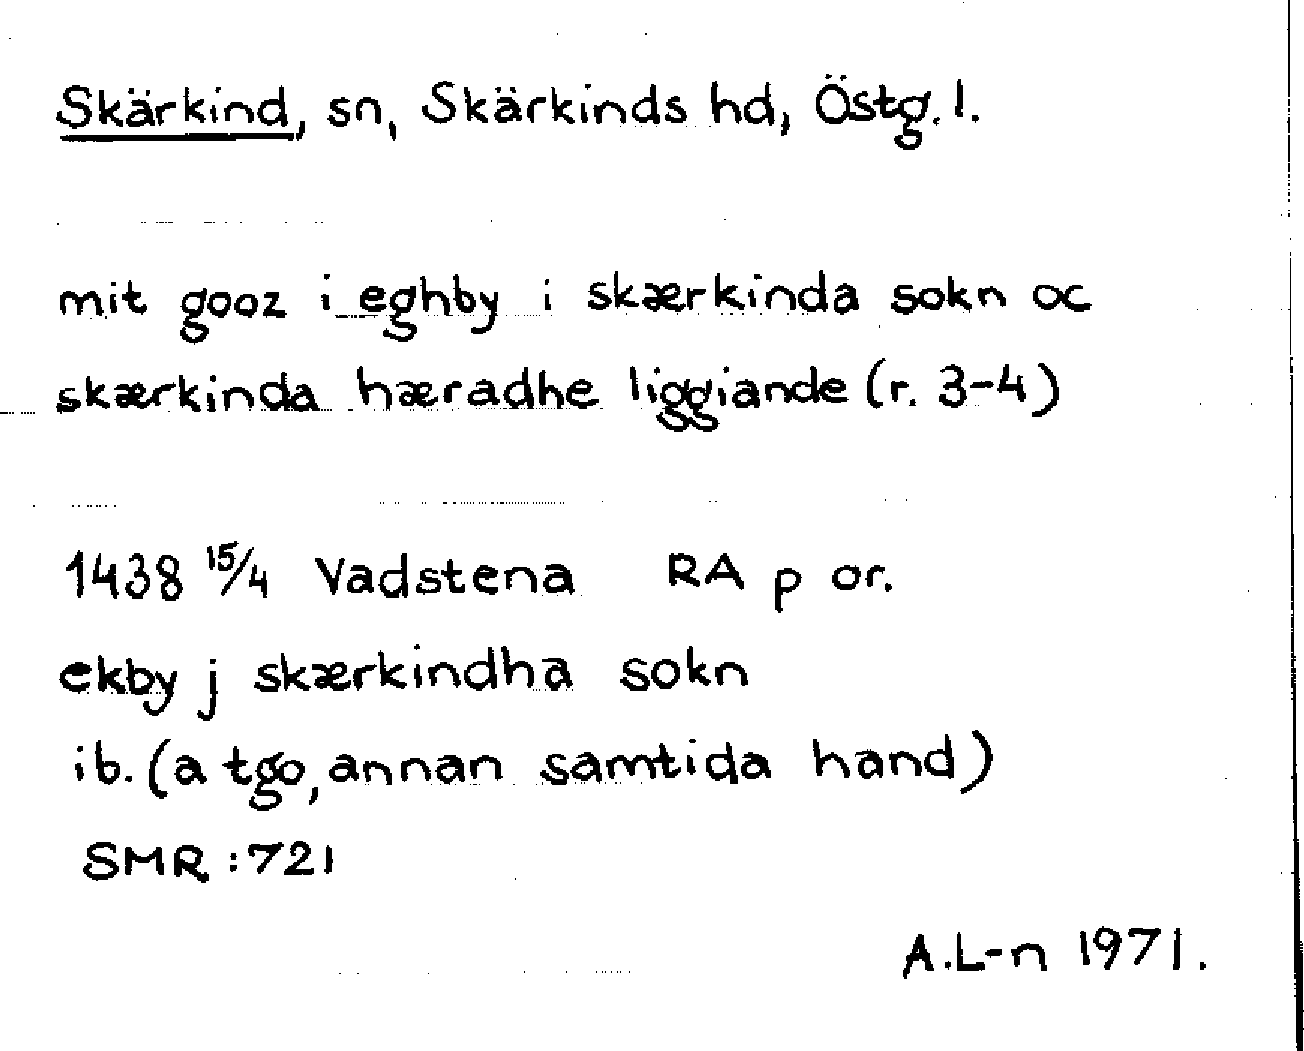 Skärkind, sn, Skärkinds hd, Östg. l.
mit gooz i eghby i skærkinda sokn oc
skærkinda hæradhe liggiande (r. 3-4)
1438 15/4 Vadstena RA p or.
ekby j skærkindha sokn
ib. (a tgo, annan samtida hand)
SMR : 721
A.L-n 1971.